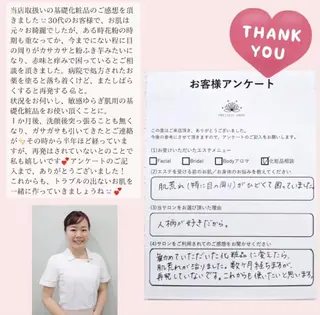 当店取扱いの基礎化粧品のご感想を頂
きました✨30代のお客様で、お肌は
元々お綺麗でしたが、ある時花粉の時
期も重なってか、今までにない程に目
の周りがカサカサと粉ふき芋みたいに
なり、赤味と痒みで困っているとご相
談を頂きました。病院で処方されたお
薬を塗ると落ち着くけど、またしばら
くすると再発すると。
状況をお伺いし、敏感ゆらぎ肌用の基
礎化粧品をお使い頂くことに。
1か月後、洗顔後突っ張ることも無く
なり、ガサガサも引いてきたとご連絡
が✨その時から半年ほど経っていま
すが、再発されていないとのことで
私も嬉しいです💕アンケートのご記
入まで、ありがとうございました！
これからも、トラブルの出ないお肌を
一緒に作っていきましょうね💕
THANK
YOU
お客様アンケート
この度はご来店頂き、ありがとうございます。
今後の参考に致しますので、アンケートのご記入をお願いします。
(1)お受けいただいたエステメニュー
Facial
Bridal
Bodyアロマ
化粧品相談
(2)エステを受ける前のお肌/お身体のお悩みを教えてください
肌荒れ(特に目の周り)がひどくて困っていました。
(3)当サロンをお選び頂いた理由
人柄が好きだから。
(4)サロンをご利用されてのご感想をお聞かせください
勧めていただいた化粧品に変えたら、
肌荒れが治りました。数ヶ月経ちますが、
再発していないです。これからも使いたいと思います。